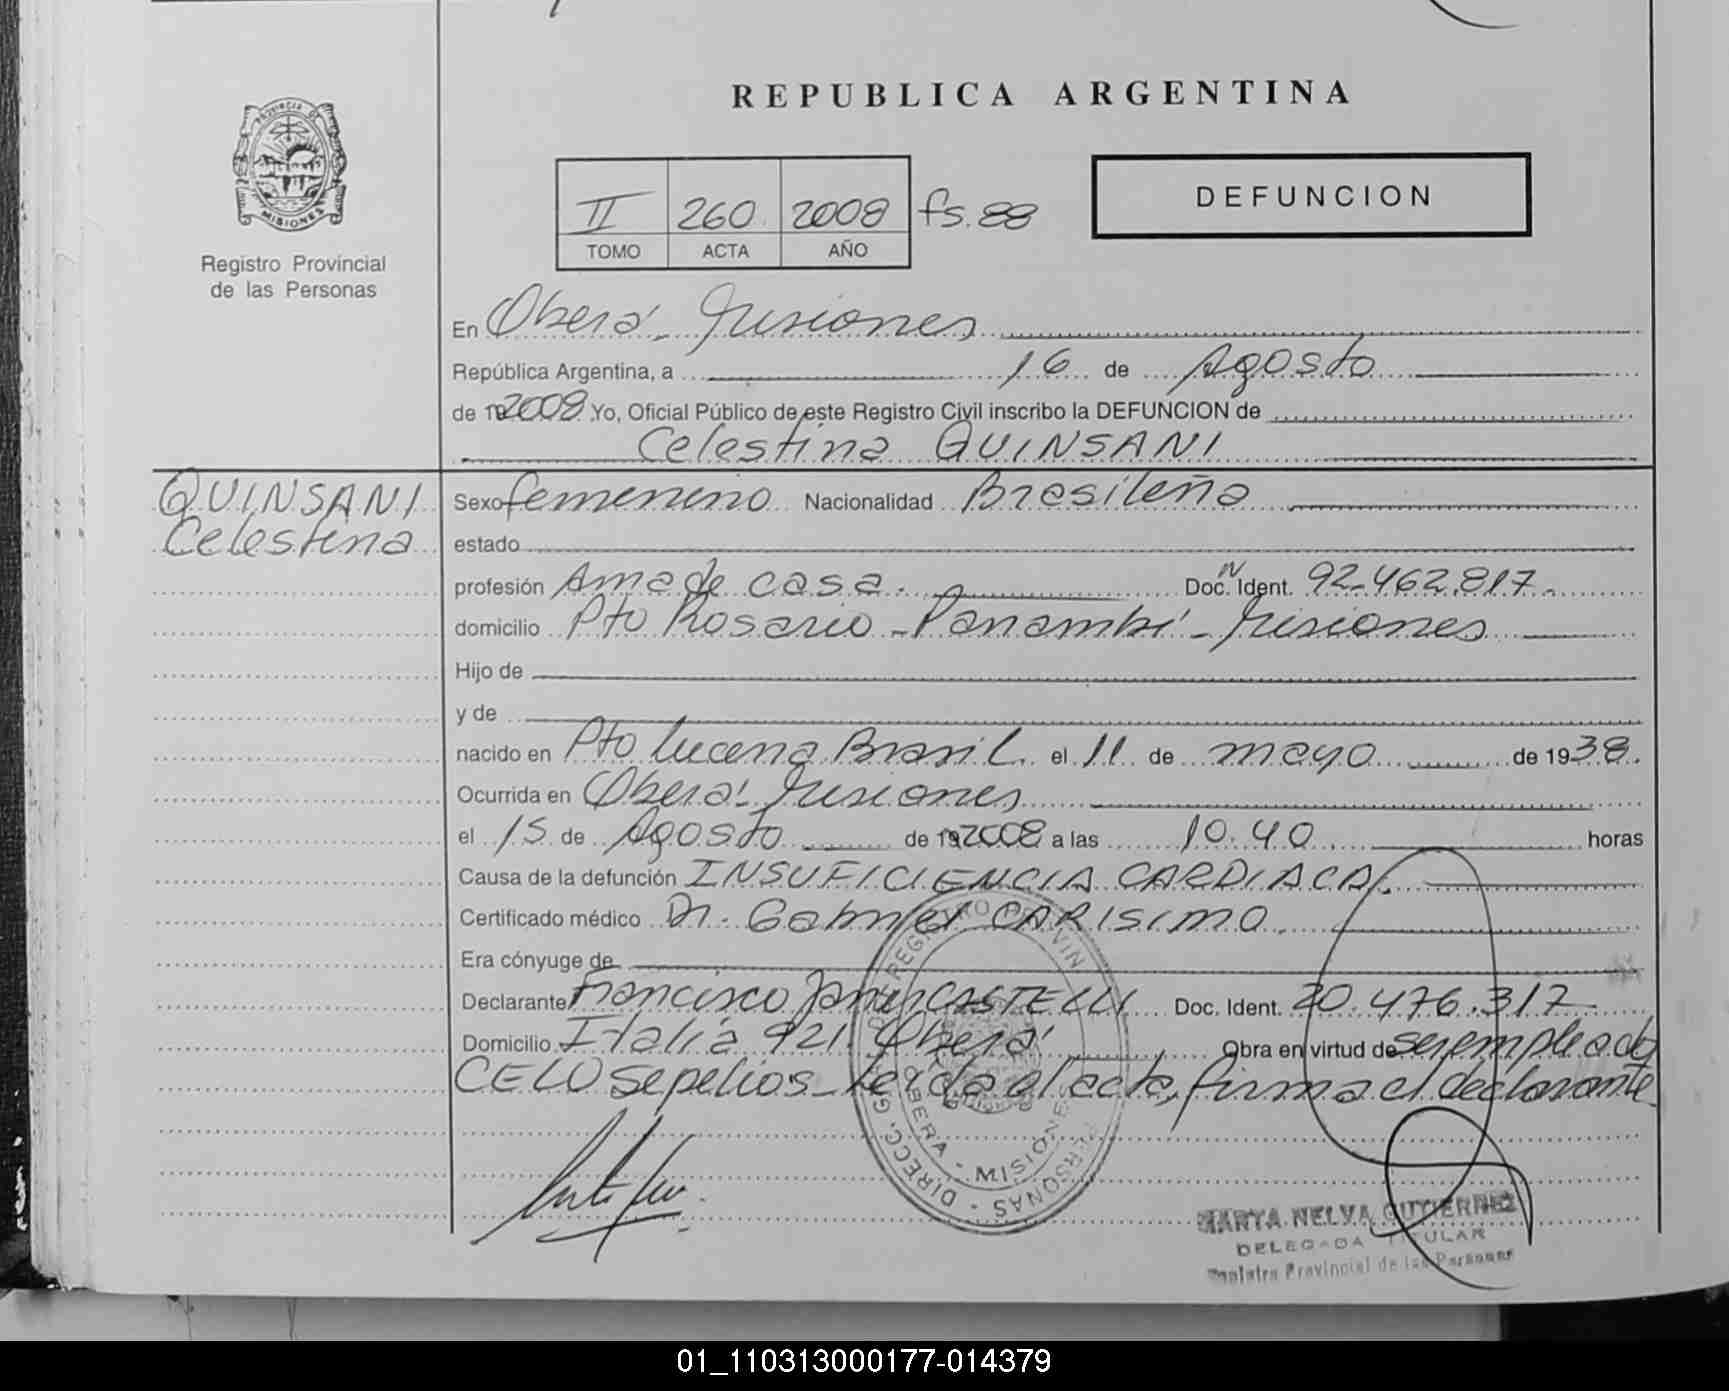 REPUBLICA ARGENTINA
PROVINCIA DE
MISIONES
Registro Provincial
de las Personas
II 260 2008 fs. 88
TOMO ACTA AÑO
DEFUNCION
En Oberá - Misiones
República Argentina, a 16 de Agosto
de 19 2008 Yo, Oficial Público de este Registro Civil inscribo la DEFUNCION de
Celestina QUINSANI
QUINSANI
Celestina
Sexo femenino Nacionalidad Brasileña
estado
profesión Ama de casa. Doc. Ident. 92.462.817.
domicilio Pto Rosario - Panambí - Misiones
Hijo de
y de
nacido en Pto Lucena Brasil. el 11 de mayo de 1938.
Ocurrida en Oberá - Misiones
el 15 de Agosto de 19 2008 a las 10.40 horas
Causa de la defunción INSUFICIENCIA CARDIACA.
Certificado médico Dr. Gabriel CARISIMO
Era cónyuge de
Declarante Francisco Javier CASTELLI Doc. Ident. 20.476.317
Domicilio Italia 921. Oberá Obra en virtud de ser empleado
CELO Sepelios - Leída el acta, firma el declarante
DIRECC. G REGISTRO PROVIN PERSONAS -
OBERA - MISIONES
MARTA NELVA GUTIERREZ
DELEGADA TITULAR
Registro Provincial de las Personas
01_110313000177-014379